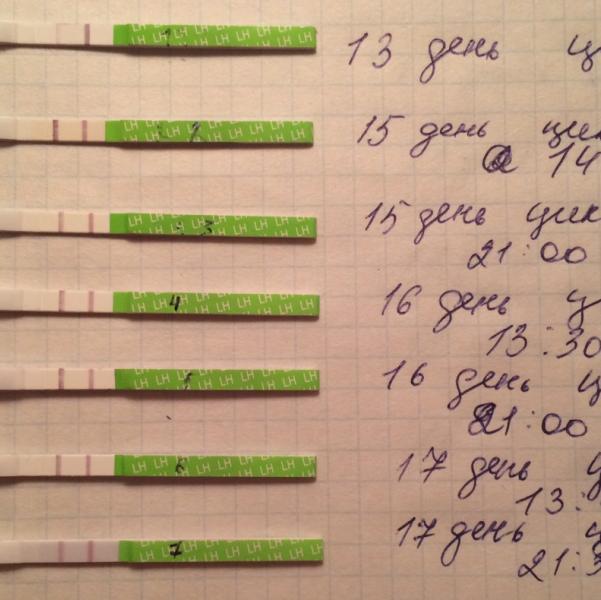 1 LH LH LH LH LH LH LH
13 день ц
2 LH LH LH LH LH LH LH
15 день цик
14
3 LH LH LH LH LH LH LH
15 день цик
21:00
4 LH LH LH LH LH LH LH
16 день ц
13:30
5 LH LH LH LH LH LH LH
16 день ц
21:00
6 LH LH LH LH LH LH LH
17 день ц
13:
7 LH LH LH LH LH LH LH
17 день ц
21:3